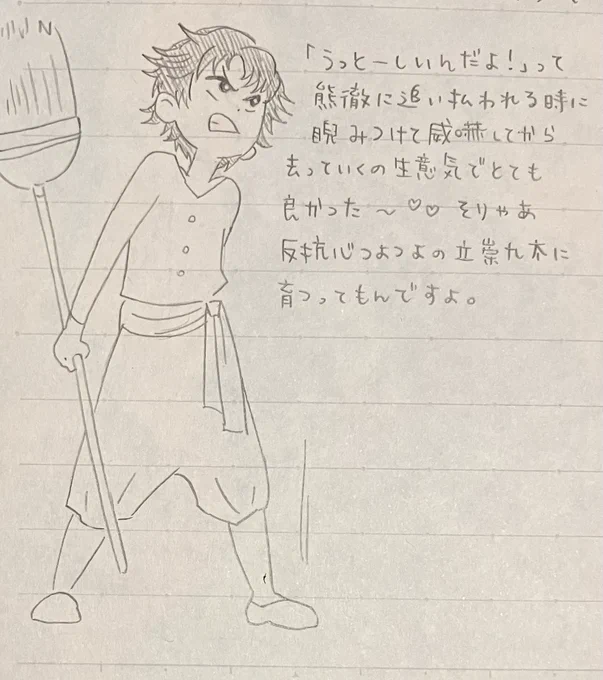 「うっとーしいんだよ!」って
熊徹に追い払われる時に
睨みつけて威嚇してから
去っていくの生意気でとても
良かった～♡♡ そりゃあ
反抗心つよつよの立崇九太に
育つってもんですよ。